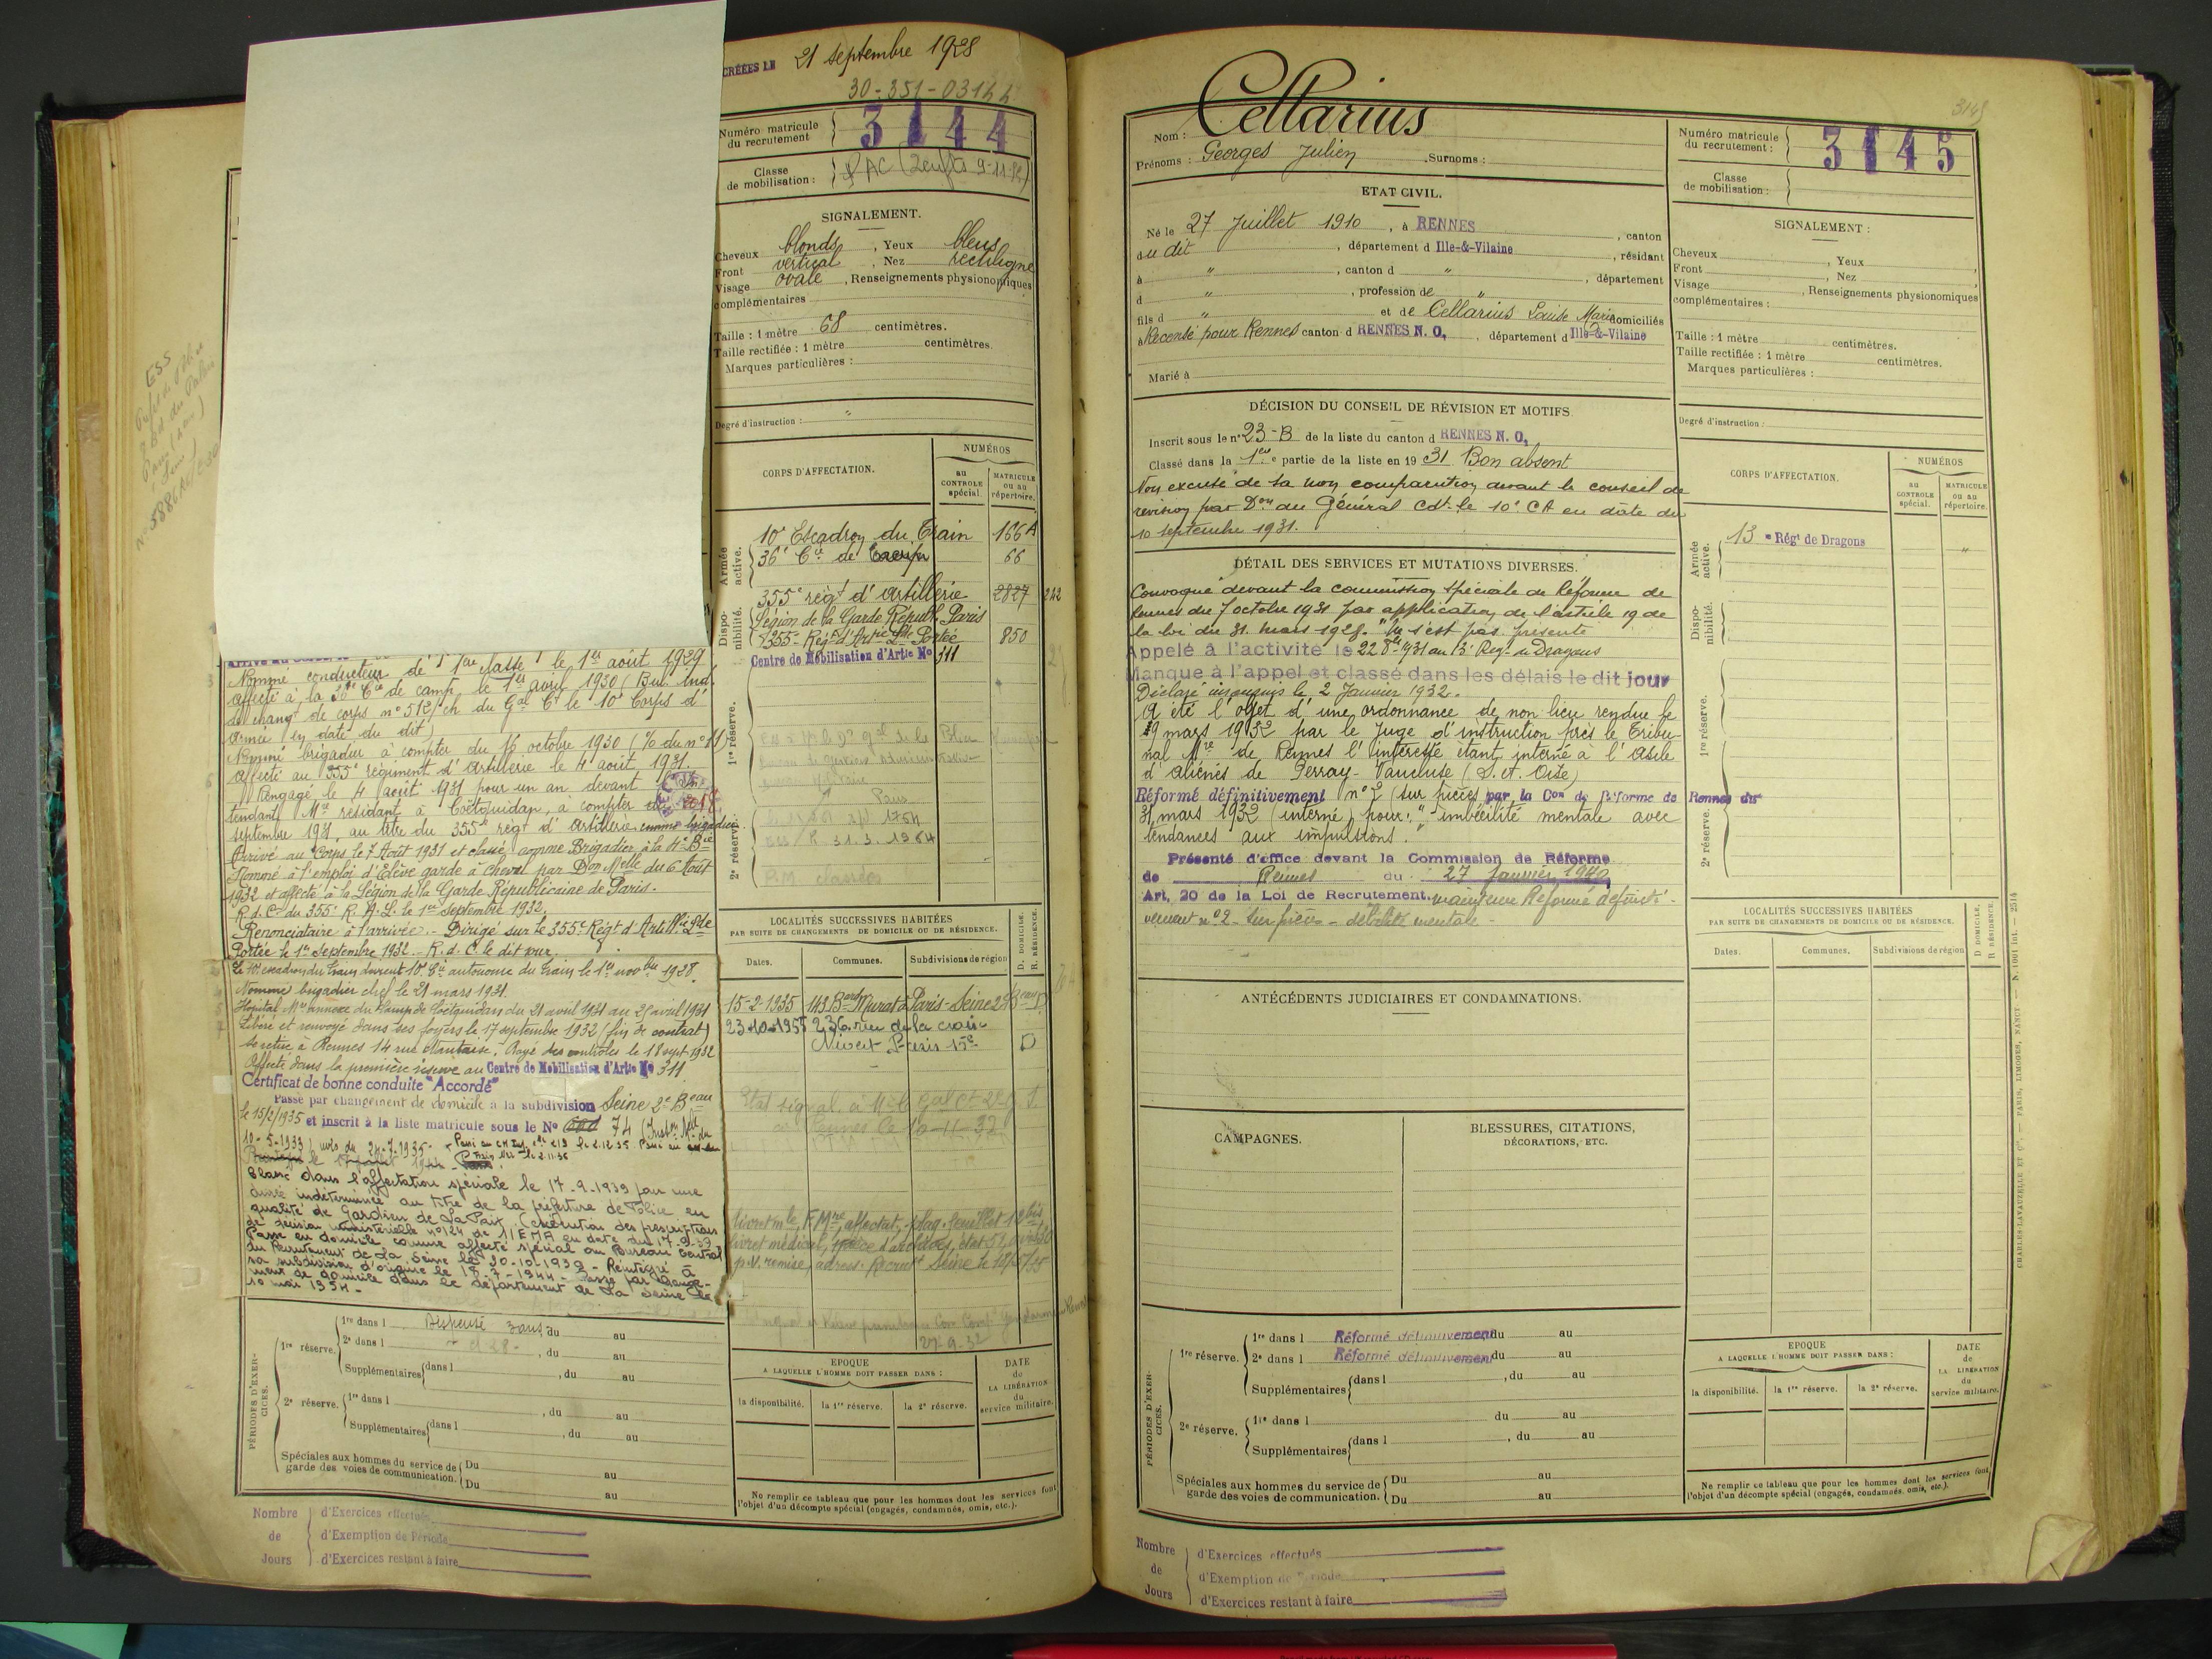 CRÉÉES LE 21 septembre 1928
30-351-03144
Numéro matricule
du recrutement
3144
Classe
de mobilisation :
SIGNALEMENT.
Cheveux blonds, Yeux bleus
Front vertical, Nez rectiligne
Visage ovale, Renseignements physionomiques
complémentaires
Taille : 1 mètre 68 centimètres.
Taille rectifiée : 1 mètre centimètres.
Marques particulières :
Degré d'instruction : "
CORPS D'AFFECTATION.
NUMÉROS
au
CONTROLE
spécial.
MATRICULE
ou au
répertoire.
Armée
active.
10e Escadron du Train 166 A
36e Cie de Camp 66
355e régt d'artillerie 2827 242
Dispo-
nibilité.
Légion de la Garde Républ. Paris
355e Régt d'Artie Lde Portée 850
Centre de Mobilisation d'Artie No 311
1re réserve.
2e réserve.
R 31.3.1964
Nommé conducteur de 1ère classe le 1er août 1929
Affecté à la 36e Cie de camp le 1er avril 1930 (Bul. Ind.
de changt de corps no 512/ch du Gal Ct le 10e Corps d'
Armée en date du dit)
Nommé brigadier à compter du 16 octobre 1930 (% du no 11)
Affecté au 355e régiment d'artillerie le 4 août 1931.
Rengagé le 4 août 1931 pour un an devant
tendant Mre résidant à Coëtquidan, à compter du
septembre 1931, au titre du 355e régt d'artillerie comme brigadier
Arrivé au Corps le 7 Août 1931 et classé comme Brigadier à la 4e Bie
Nommé à l'emploi d'Élève garde à cheval par Don Melle du 6 Août
1932 et affecté à la Légion de la Garde Républicaine de Paris.
R. d. C. du 355e R. A. L. le 1er Septembre 1932.
Renonciataire à l'arrivée. - Dirigé sur le 355e Régt d'Artillie Lde
Portée le 1er Septembre 1932. R. d. C. le dit jour.
Le 10e escadron du train devient 10e Cie autonome du train le 1er novbre 1928.
Nommé brigadier chef le 21 mars 1931.
Hôpital Mre annexe du Camp de Coëtquidan du 21 avril 1931 au 25 avril 1931
Libéré et renvoyé dans ses foyers le 17 septembre 1932 (fin de contrat)
Se retire à Rennes 14 rue Nantaise. Rayé des contrôles le 18 sept 1932
Affecté dans la première réserve au Centre de Mobilisation d'Artie No 311
Certificat de bonne conduite "Accordé"
Passé par changement de domicile à la subdivision Seine 2e Beau
le 15/2/1935 et inscrit à la liste matricule sous le No 74
Classé dans l'affectation spéciale le 17-9-1939 pour une
durée indéterminée au titre de la préfecture de Police en
qualité de Gardien de La Paix. (exécution des prescriptions
de décision ministérielle no 124 de 1/EMA en date du 17-9-39
Passe en domicile comme affecté spécial au Bureau Central
du Recrutement de La Seine le 30-10-1939 - Réintégré à
sa subdivision d'origine le 18-7-1944 - Passé par change-
ment de domicile dans le département de la Seine le
10 mai 1954 -
LOCALITÉS SUCCESSIVES HABITÉES
PAR SUITE DE CHANGEMENTS DE DOMICILE OU DE RÉSIDENCE.
Dates.
Communes.
Subdivisions de région
D. DOMICILE.
R. RÉSIDENCE.
15-2-1935 143 Berd Murat à Paris - Seine 2e Beau D
23-10-1955 236 rue de la croix
Nivert Paris 15e D
27-9-32
PÉRIODES D'EXER-
CICES.
1re réserve.
1re dans l Dispensé 3 ans, du au
2e dans l , du au
Supplémentaires dans l , du au
2e réserve.
1re dans l , du au
Supplémentaires dans l , du au
Spéciales aux hommes du service de
garde des voies de communication.
Du au
Du au
EPOQUE
A LAQUELLE L'HOMME DOIT PASSER DANS :
DATE
de
LA LIBÉRATION
du
service militaire.
la disponibilité. la 1re réserve. la 2e réserve.
Ne remplir ce tableau que pour les hommes dont les services font
l'objet d'un décompte spécial (engagés, condamnés, omis, etc.).
Nombre
de
Jours
d'Exercices effectués
d'Exemption de Période
d'Exercices restant à faire
3145
Nom : Cellarius
Prénoms : Georges Julien Surnoms :
Numéro matricule
du recrutement :
3145
Classe
de mobilisation :
ETAT CIVIL.
Né le 27 Juillet 1910, à RENNES, canton
du dit, département d Ille-&-Vilaine, résidant
à ", canton d ", département
d ", profession de "
fils d " et de Cellarius Louise Marie domiciliés
à Recensé pour Rennes canton d RENNES N. O., département d Ille-&-Vilaine
Marié à
DÉCISION DU CONSEIL DE RÉVISION ET MOTIFS
Inscrit sous le no 23-B de la liste du canton d RENNES N. O.
Classé dans la 1ère partie de la liste en 1931 Bon absent
Non excusé de sa non comparution devant le conseil de
révision par Don du Général Cdt le 10e CA en date du
10 septembre 1931.
DÉTAIL DES SERVICES ET MUTATIONS DIVERSES.
Convoqué devant la commission spéciale de Réforme de
Rennes du 7 octobre 1931 par application de l'article 19 de
la loi du 31 mars 1928. "Ne s'est pas présenté
Appelé à l'activité le 22 8bre 1931 au 13e Régt de Dragons
Manque à l'appel et classé dans les délais le dit jour
Déclaré insoumis le 2 Janvier 1932.
A été l'objet d'une ordonnance de non lieu rendue le
19 mars 1932 par le Juge d'instruction près le Tribu-
nal Mre de Rennes l'intéressé étant interné à l'Asile
d'aliénés de Perray-Vaucluse (S. et Oise)
Réformé définitivement no 2 (sur pièces) par la Con de Réforme de Rennes du
31 mars 1932 (interné) pour : "imbécilité mentale avec
tendances aux impulsions."
Présenté d'office devant la Commission de Réforme
de Rennes du 27 janvier 1940
Art. 20 de la Loi de Recrutement. maintenu Réformé définiti-
vement no 2 - sur pièces - débilité mentale -
ANTÉCÉDENTS JUDICIAIRES ET CONDAMNATIONS.
CAMPAGNES.
BLESSURES, CITATIONS,
DÉCORATIONS, ETC.
SIGNALEMENT :
Cheveux , Yeux ,
Front , Nez ,
Visage , Renseignements physionomiques
complémentaires :
Taille : 1 mètre centimètres.
Taille rectifiée : 1 mètre centimètres.
Marques particulières :
Degré d'instruction :
CORPS D'AFFECTATION.
NUMÉROS
au
CONTROLE
spécial.
MATRICULE
ou au
répertoire.
Armée
active.
13e Régt de Dragons "
Dispo-
nibilité.
1re réserve.
2e réserve.
LOCALITÉS SUCCESSIVES HABITÉES
PAR SUITE DE CHANGEMENTS DE DOMICILE OU DE RÉSIDENCE.
Dates.
Communes.
Subdivisions de région
D. DOMICILE.
R. RÉSIDENCE.
PÉRIODES D'EXER-
CICES.
1re réserve.
1re dans l Réformé définitivement du au
2e dans l Réformé définitivement du au
Supplémentaires dans l , du au
2e réserve.
1re dans l du au
Supplémentaires dans l , du au
Spéciales aux hommes du service de
garde des voies de communication.
Du au
Du au
EPOQUE
A LAQUELLE L'HOMME DOIT PASSER DANS :
DATE
de
LA LIBÉRATION
du
service militaire.
la disponibilité. la 1re réserve. la 2e réserve.
Ne remplir ce tableau que pour les hommes dont les services font
l'objet d'un décompte spécial (engagés, condamnés, omis, etc.).
Nombre
de
Jours
d'Exercices effectués
d'Exemption de Période
d'Exercices restant à faire
CHARLES-LAVAUZELLE ET Cie. — PARIS, LIMOGES, NANCY